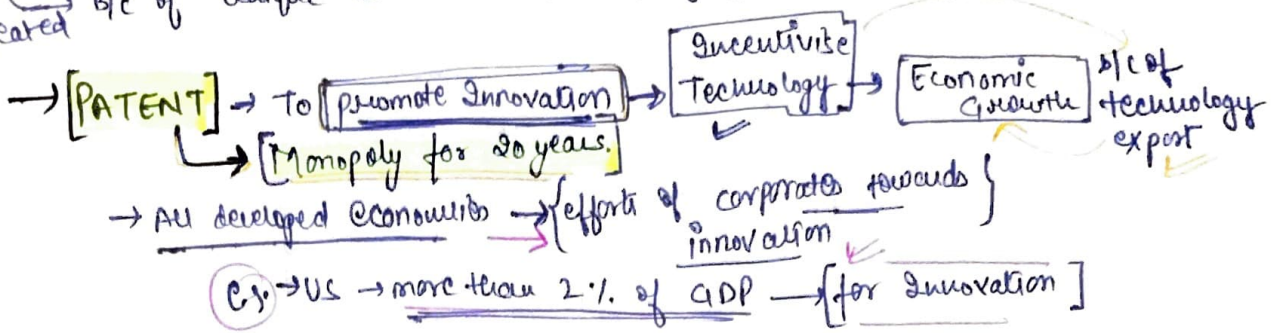 eated b/c of
→ [PATENT] → To [promote Innovation] → [Incentivise Technology] → [Economic Growth] b/c of technology export
→ [Monopoly for 20 years.]
→ All developed economies → {efforts of corporates towards innovation}
eg. → US → more than 2% of GDP → [for Innovation]